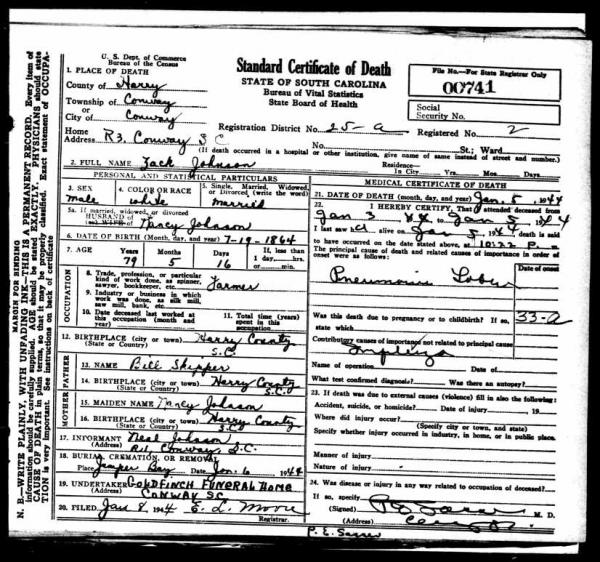 U. S. Dept. of Commerce
Bureau of the Census
Standard Certificate of Death
STATE OF SOUTH CAROLINA
Bureau of Vital Statistics
State Board of Health
File No.—For State Registrar Only
00741
1. PLACE OF DEATH
County of Horry
Township of Conway
or
City of Conway
Social
Security No.
Registration District No. 25-a Registered No. 2
Home
Address R3, Conway S C No. St.; Ward
(If death occurred in a hospital or other institution, give name of same instead of street and number.)
2. FULL NAME Zack Johnson
Residence—
In City Yrs. Mos. Days
PERSONAL AND STATISTICAL PARTICULARS
3. SEX
male
4. COLOR OR RACE
white
5. Single, Married, Widowed,
or Divorced (write the word)
married
5a. If married, widowed, or divorced
HUSBAND of
(or) WIFE of Nancy Johnson
6. DATE OF BIRTH (Month, day, and year) 7-19-1864
7. AGE Years Months Days If less than
1 day, hrs.
or min.
79 5 16
OCCUPATION
8. Trade, profession, or particular
kind of work done, as spinner,
sawyer, bookkeeper, etc. Farmer
9. Industry or business in which
work was done, as silk mill,
saw mill, bank, etc.
10. Date deceased last worked at
this occupation (month and
year)
11. Total time (years)
spent in this
occupation
12. BIRTHPLACE (city or town) Horry County
(State or Country) S.C.
FATHER
13. NAME Bill Skipper
14. BIRTHPLACE (city or town) Horry County
(State or Country) S.C.
MOTHER
15. MAIDEN NAME Nancy Johnson
16. BIRTHPLACE (city or town) Horry County
(State or Country) S.C.
17. INFORMANT Neal Johnson
(Address) Conway, S.C.
18. BURIAL, CREMATION, OR REMOVAL
Place Juniper Bay Date Jan. 6 1944
19. UNDERTAKER GOLDFINCH FUNERAL HOME
(Address) CONWAY SC
20. FILED Jan 8, 1944 E. L. Moore
Registrar.
MEDICAL CERTIFICATE OF DEATH
21. DATE OF DEATH (Month, day, and year) Jan. 5, 1944
22. I HEREBY CERTIFY, That I attended deceased from
Jan 3 44 to Jan 5 1944
I last saw alive on Jan 5 44 death is said
to have occurred on the date stated above, at 10:22 P m
The principal cause of death and related causes of importance in order of
onset were as follows:
Date of onset
Pneumonia Lobar
Was this death due to pregnancy or to childbirth? If so,
state which 33-a
Contributory causes of importance not related to principal cause
Name of operation Date of
What test confirmed diagnosis? Was there an autopsy?
23. If death was due to external causes (violence) fill in also the following:
Accident, suicide, or homicide? Date of injury 19
Where did injury occur?
(Specify city or town, and state)
Specify whether injury occurred in industry, in home, or in public place.
Manner of injury
Nature of injury
24. Was disease or injury in any way related to occupation of deceased?
If so, specify
(Signed) M. D.
(Address)
MARGIN RESERVED FOR BINDING
N. B.—WRITE PLAINLY, WITH UNFADING INK—THIS IS A PERMANENT RECORD. Every item of
information should be carefully supplied. AGE should be stated EXACTLY. PHYSICIANS should state
CAUSE OF DEATH in plain terms, so that it may be properly classified. Exact statement of OCCUPA-
TION is very important. See instructions on back of certificate.